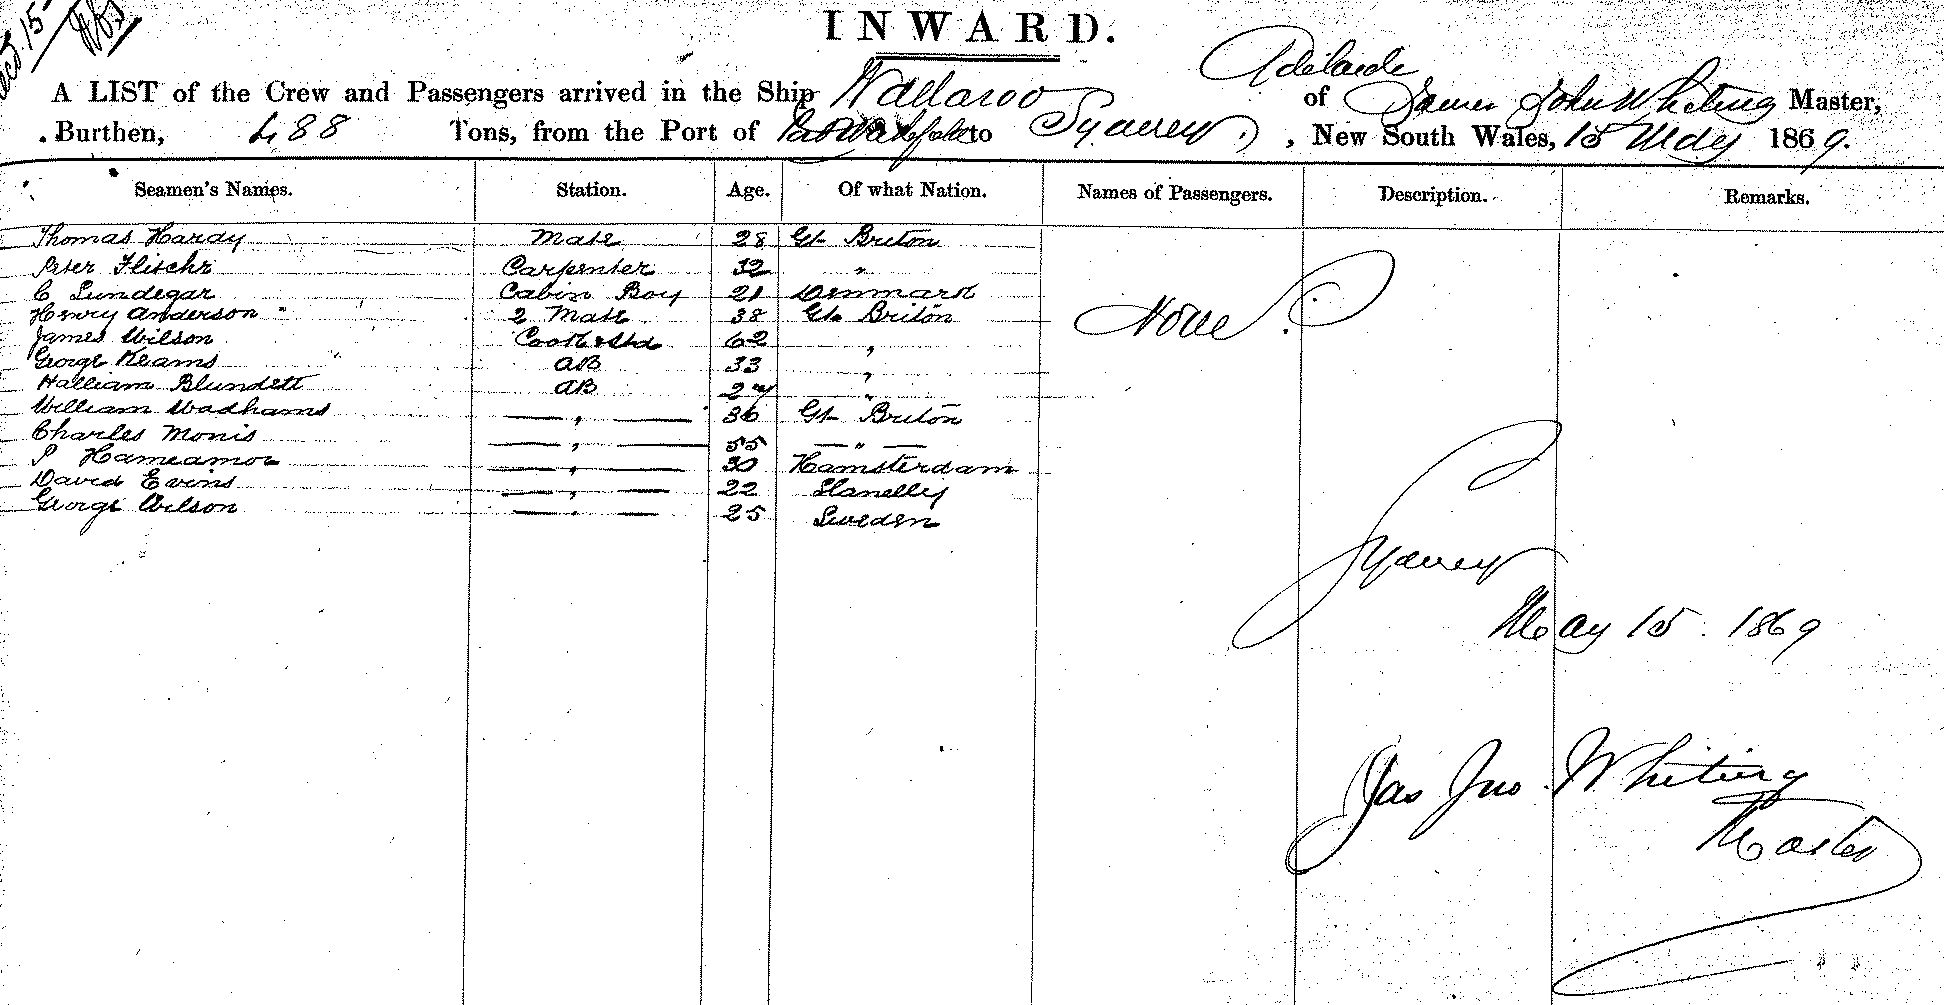 Oct. 15
INWARD.
Adelaide
A LIST of the Crew and Passengers arrived in the Ship Wallaroo of James John Whiting Master,
Burthen, 488 Tons, from the Port of to Sydney, New South Wales, 15 May 1869.
Seamen's Names. Station. Age. Of what Nation. Names of Passengers. Description. Remarks.
Thomas Hardy Mate 28 Gt Briton
Peter Flischr Carpenter 32 "
C Lundegar Cabin Boy 21 Denmark
Henry Anderson 2 Mate 38 Gt Briton None.
James Wilson Cook & Std 62 "
George Keams AB 33 "
Halliam Blundett AB 27 "
William Wadhams " 36 Gt Briton
Charles Monis " 55 "
P Hameamor " 30 Hamsterdam
David Evins " 22 Llanelly
George Wilson " 25 Sweden
Sydney
May 15. 1869
Jas Jno Whiting
Master